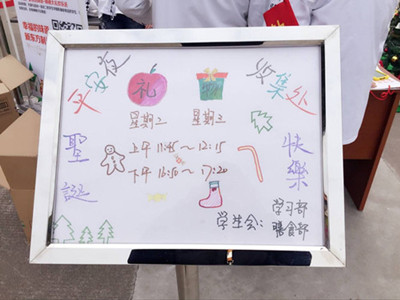 平安夜 礼 收集处
星期二 星期三
上午 11:45～12:15
下午 16:50～17:20
聖誕 快樂
学生会：学习部
膳食部